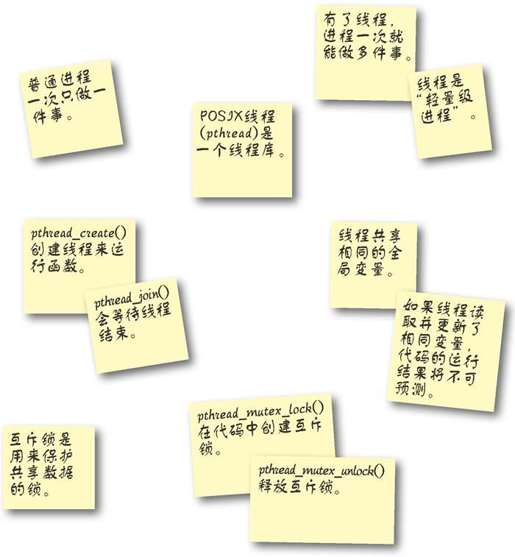 普通进程
一次只做一
件事。
POSIX线程
(pthread)是
一个线程库。
有了线程，
进程一次就
能做多件事。
线程是
“轻量级
进程”。
pthread_create()
创建线程来运
行函数。
pthread_join()
会等待线程
结束。
线程共享
相同的全
局变量。
如果线程读
取并更新了
相同变量，
代码的运行
结果将不可
预测。
互斥锁是
用来保护
共享数据
的锁。
pthread_mutex_lock()
在代码中创建互斥
锁。
pthread_mutex_unlock()
释放互斥锁。